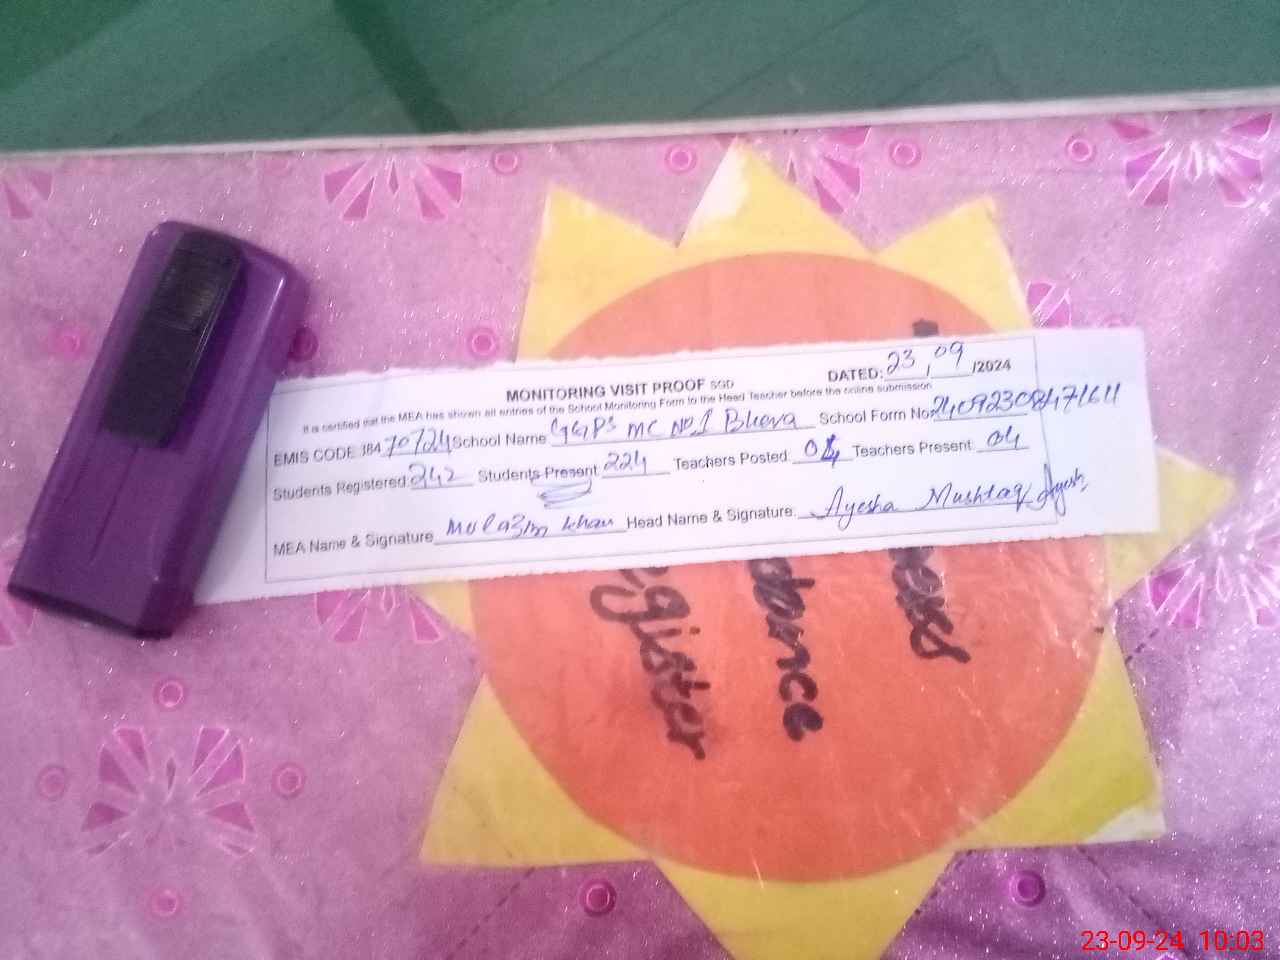 MONITORING VISIT PROOF SGD
DATED: 23/09/2024
It is certified that the MEA has shown all entries of the School Monitoring Form to the Head Teacher before the online submission
EMIS CODE 384 70724 School Name GGPS MC No.1 Bhera School Form No
Students Registered: 242 Students Present: 224 Teachers Posted: Teachers Present: 04
MEA Name & Signature Mulazim Khan Head Name & Signature: Ayesha Mushtaq Ayesh
gister
dance
23-09-24 10:03